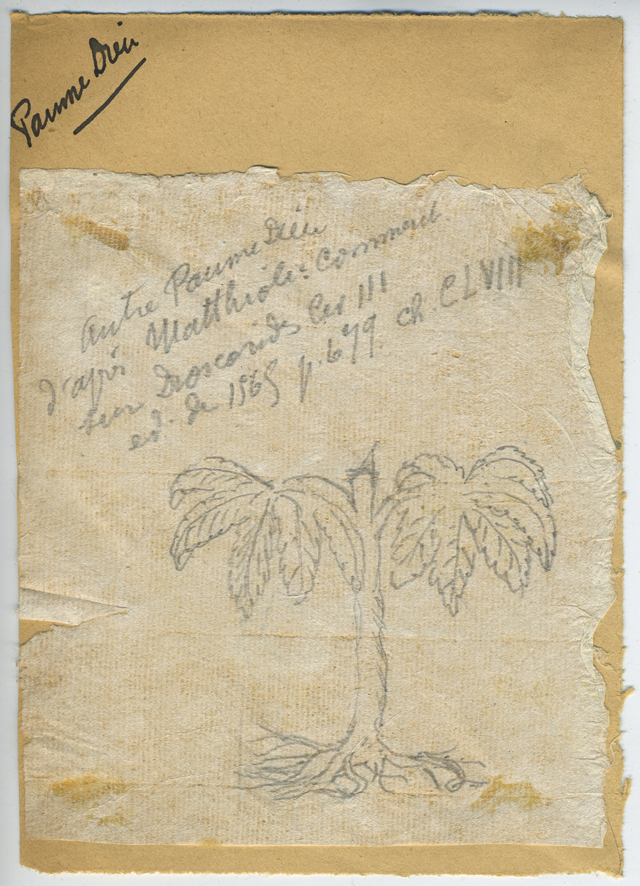 Paume Dieu
Autre Paume Dieu
d'après Matthiole: Comment.
sur Dioscorides Liv III
ed. de 1565 p. 679. ch. CLVIII